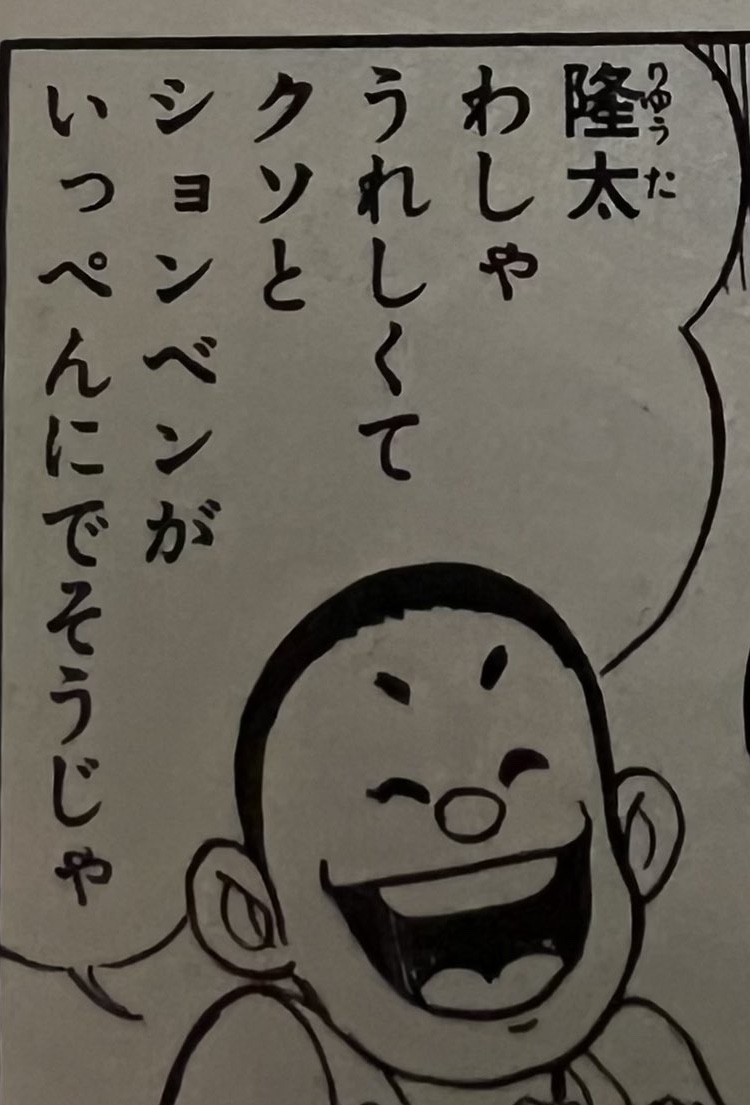 隆太
りゅうた
わしゃ
うれしくて
クソと
ションベンが
いっぺんにでそうじゃ